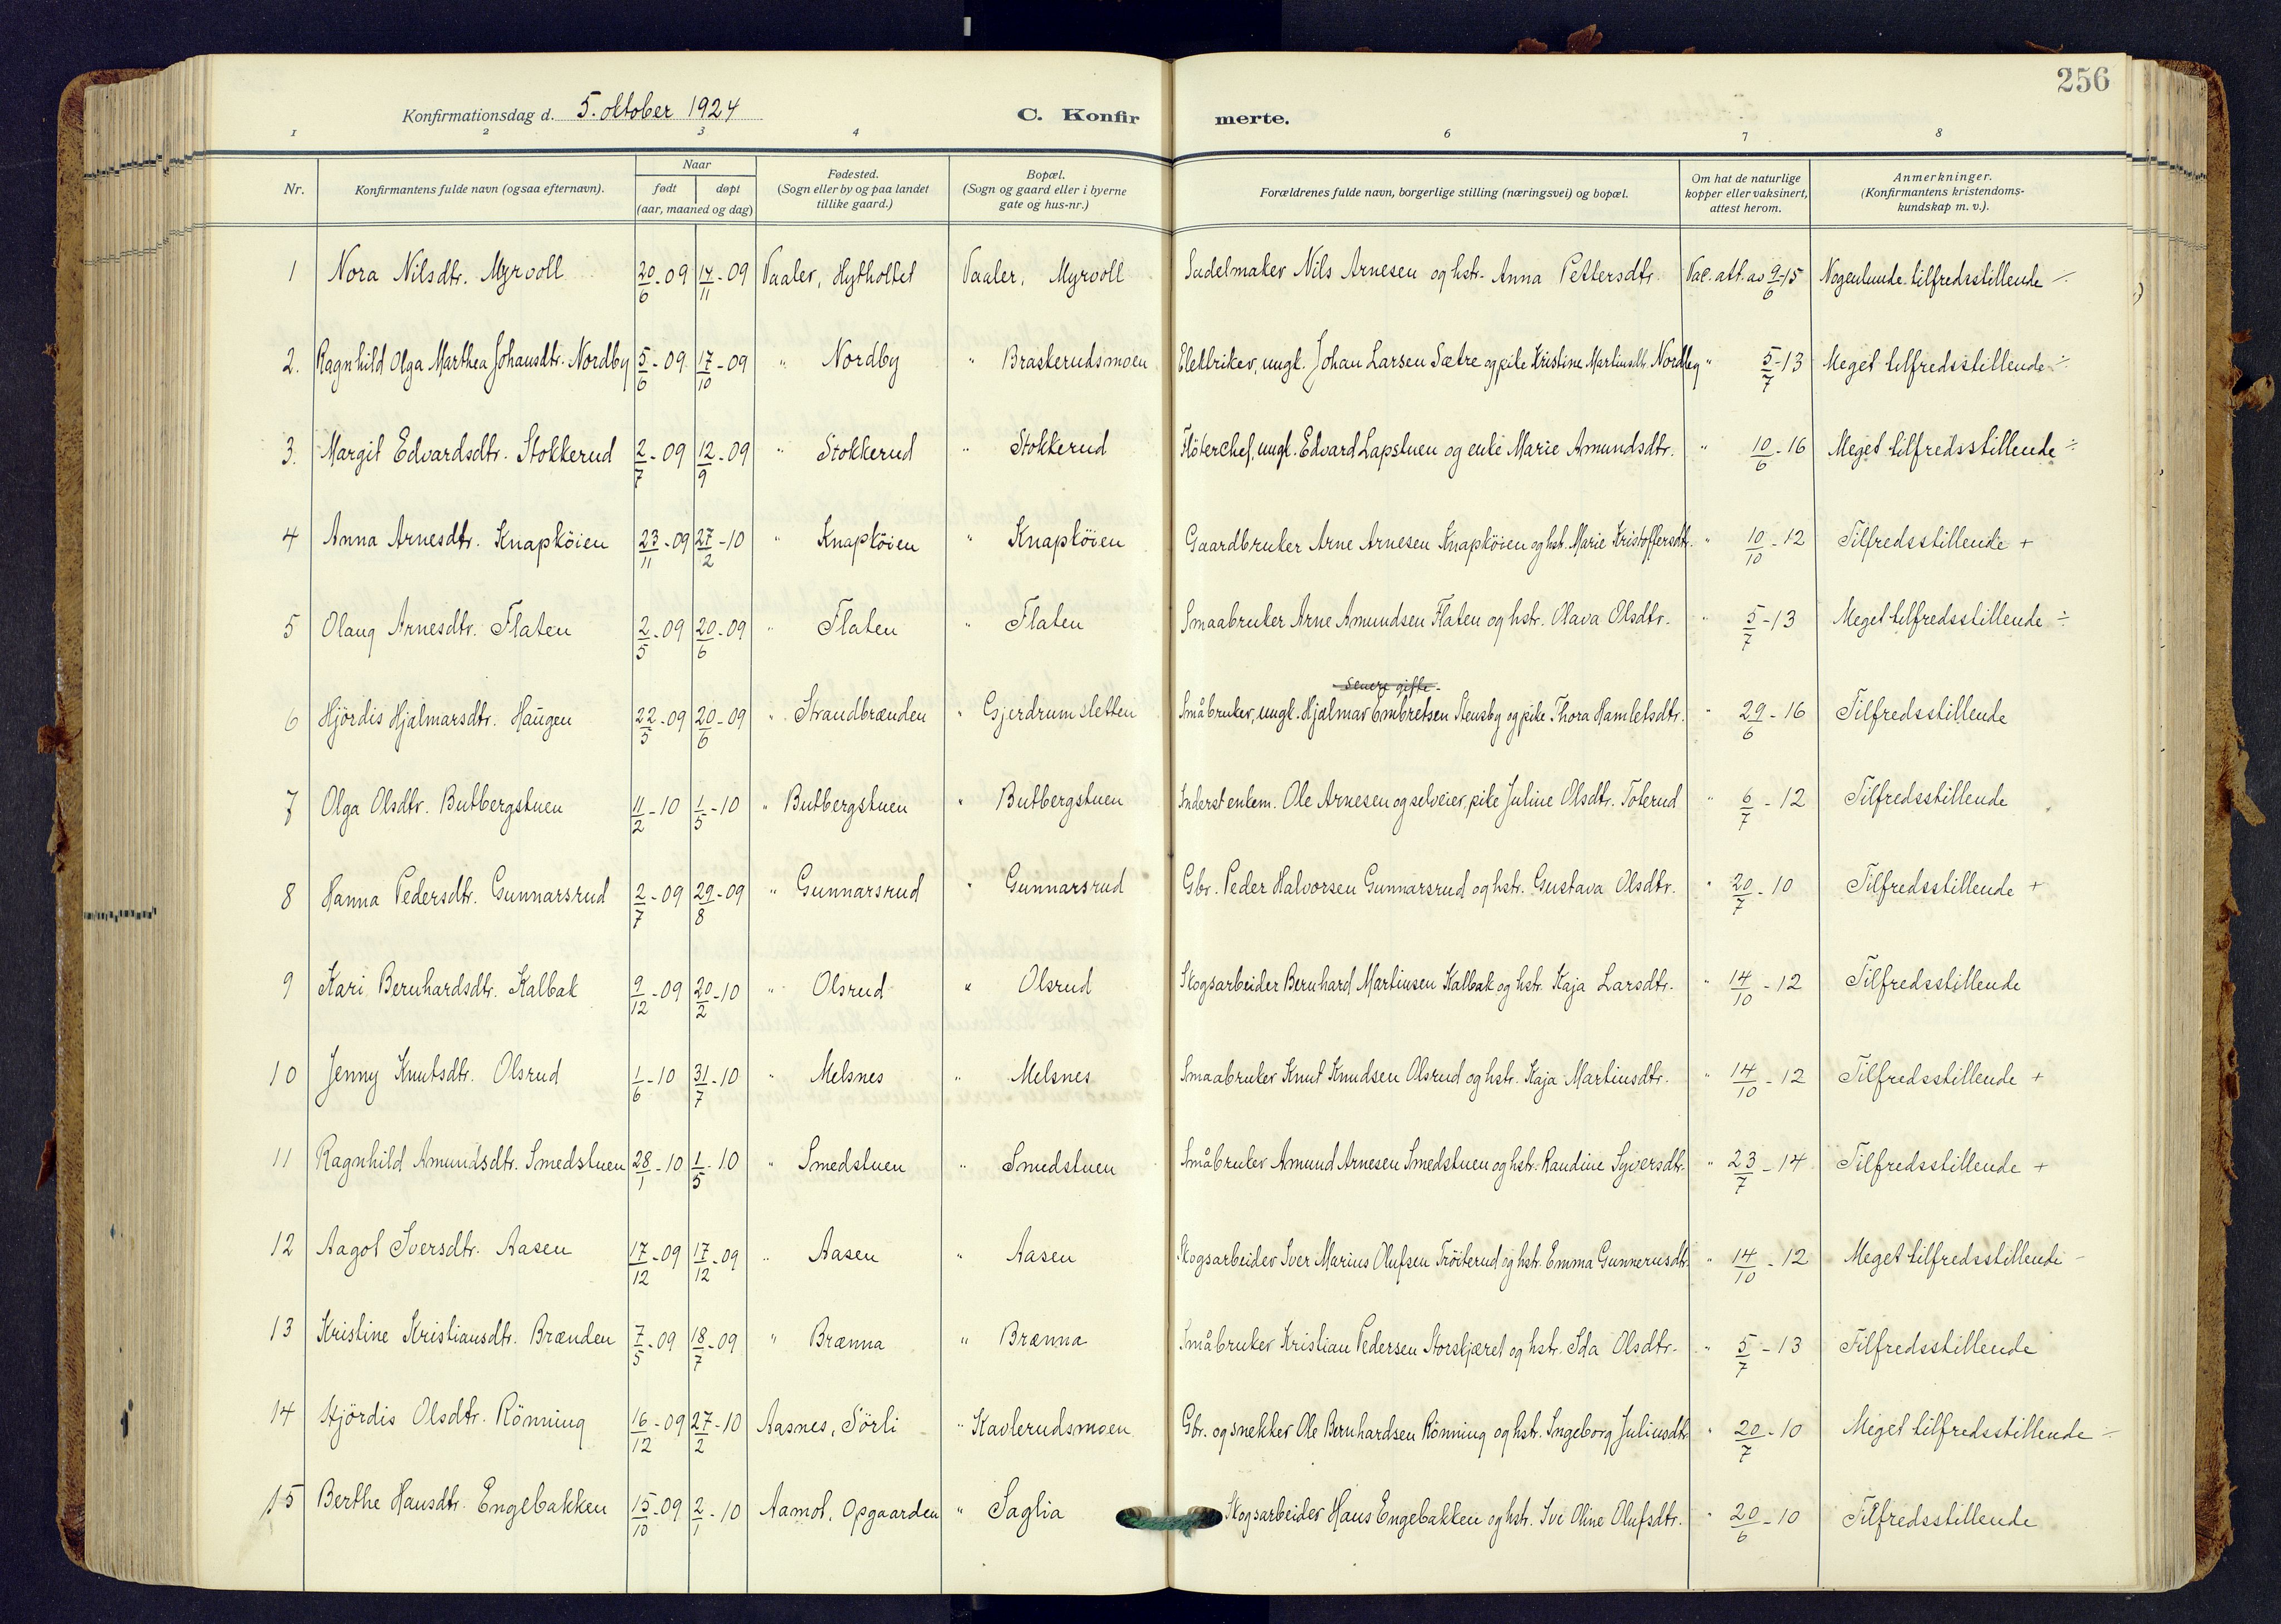 256
Konfirmationsdag d. 5. oktober 1924 C. Konfir merte.
1 2 3 4 5 6 7 8
Nr. Konfirmantens fulde navn (ogsaa efternavn). Naar født døpt (aar, maaned og dag) Fødested. (Sogn eller by og paa landet tillike gaard.) Bopæl. (Sogn og gaard eller i byerne gate og hus-nr.) Forældrenes fulde navn, borgerlige stilling (næringsvei) og bopæl. Om hat de naturlige kopper eller vaksinert, attest herom. Anmerkninger. (Konfirmantens kristendoms-kundskap m. v.).
1 Nora Nilsdtr. Myrvoll 20/6-09 14/11-09 Vaaler, Hytholtet Vaaler, Myrvoll Sadelmaker Nils Arnesen og hstr. Anna Pettersdtr. Vac. att. av 9/6-15 Nogenlunde tilfredsstillende ÷
2. Ragnhild Olga Marthea Johansdtr. Nordby 5/6-09 17/10-09 " Nordby " Braskerudsmoen Elektriker, ungk. Johan Larsen Sætre og pike Kristine Martinsdtr. Nordby " 5/7-13 Meget tilfredsstillende ÷
3. Margit Edvardsdtr. Stokkerud 2/7-09 12/9-09 " Stokkerud " Stokkerud Flöterchef, ungk. Edvard Lapstuen og enke Marie Amundsdtr. " 10/6-16 Meget tilfredsstillende ÷
4 Anna Arnesdtr. Knapköien 23/11-09 27/2-10 " Knapköien " Knapköien Gaardbruker Arne Arnesen Knapköien og hst. Marie Kristoffersdtr. " 10/10-12 Tilfredsstillende +
5 Olaug Arnesdtr. Flaten 2/5-09 20/6-09 " Flaten " Flaten Smaabruker Arne Amundsen Flaten og hstr. Olava Olsdtr. " 5/7-13 Meget tilfredsstillende ÷
senere gifte.
6 Hjördis Hjalmarsdtr. Haugen 22/5-09 20/6-09 " Strandbrænden " Gjerdrumsletten Småbruker, ungk. Hjalmar Embretsen Stensby og pike Thora Hamletsdtr. " 29/6-16 Tilfredsstillende
7 Olga Olsdtr. Butbergstuen 11/2-10 1/5-10 " Butbergstuen " Butbergstuen Inderst enkem. Ole Arnesen og selveier, pike Juline Olsdtr. Toterud " 6/7-12 Tilfredsstillende
8 Hanna Pedersdtr. Gunnarsrud 2/7-09 29/8-09 " Gunnarsrud " Gunnarsrud Gbr. Peder Halvorsen Gunnarsrud og hstr. Gustava Olsdtr. " 20/7-10 Tilfredsstillende +
9 Kari Bernhardsdtr. Kalbak 9/12-09 20/2-10 " Olsrud " Olsrud Skogsarbeider Bernhard Martinsen Kalbak og hstr. Kaja Larsdtr. " 14/10-12 Tilfredsstillende
10 Jenny Knutsdtr. Olsrud 1/6-10 31/7-10 " Melsnes " Melsnes Smaabruker Knut Knudsen Olsrud og hstr. Kaja Martinsdtr. " 14/10-12 Tilfredsstillende +
11 Ragnhild Amundsdtr. Smedstuen 28/1-10 1/5-10 " Smedstuen " Smedstuen Småbruker Amund Arnesen Smedstuen og hstr. Randine Syversdtr. " 23/7-14 Tilfredsstillende +
12 Aagot Iversdtr. Aasen 17/12-09 17/12-09 " Aasen " Aasen Skogsarbeider Iver Marius Olufsen Tröiterud og hstr. Emma Gunnerusdtr. " 14/10-12 Meget tilfredsstillende -
13 Kristine Kristiansdtr. Brænden 7/5-09 18/7-09 " Brænna " Brænna Småbruker Kristian Pedersen Storskjæret og hstr. Ida Olsdtr. " 5/7-13 Tilfredsstillende
14 Hjördis Olsdtr. Rönning 16/12-09 27/2-10 Aasnes, Sörli " Kavlerudsmoen Gbr. og snekker Ole Bernhardsen Rönning og hstr. Ingeborg Juliusdtr. " 20/7-10 Meget tilfredsstillende ÷
15 Berthe Hansdtr. Engebakken 15/10-09 2/1-10 Aamot, Opgaarden " Saglia Skogsarbeider Hans Engebakken og hstr. Oline Olufsdtr. " 20/6-10 Tilfredsstillende